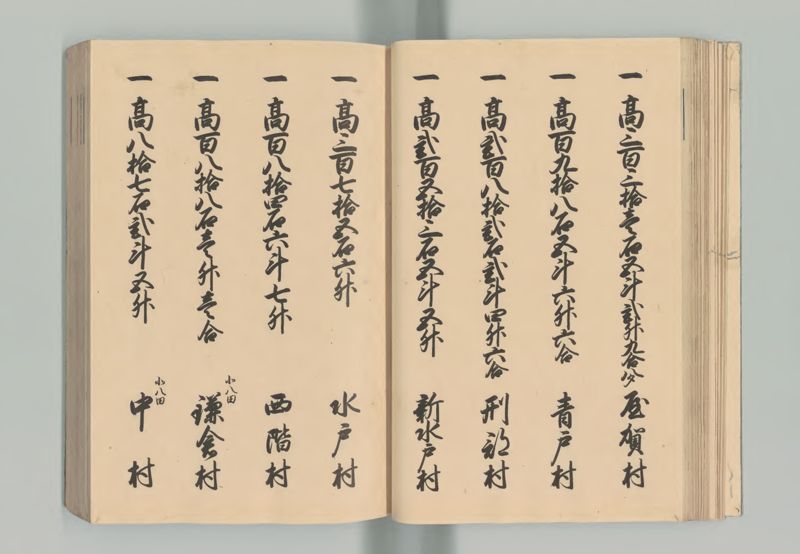 一 高三百三拾壱石五斗弐升九合八夕 屋賀村
一 高百九拾八石五斗六升六合 青戸村
一 高弐百八拾弐石弐斗四升六合 刑部村
一 高弐百五拾三石五斗五升 新水戸村
一 高三百七拾五石六升 水戸村
一 高百八拾四石六斗七升 西階村
一 高百八拾八石壱升壱合 小八田 鎌倉村
一 高八拾七石弐斗五升 小八田 中村